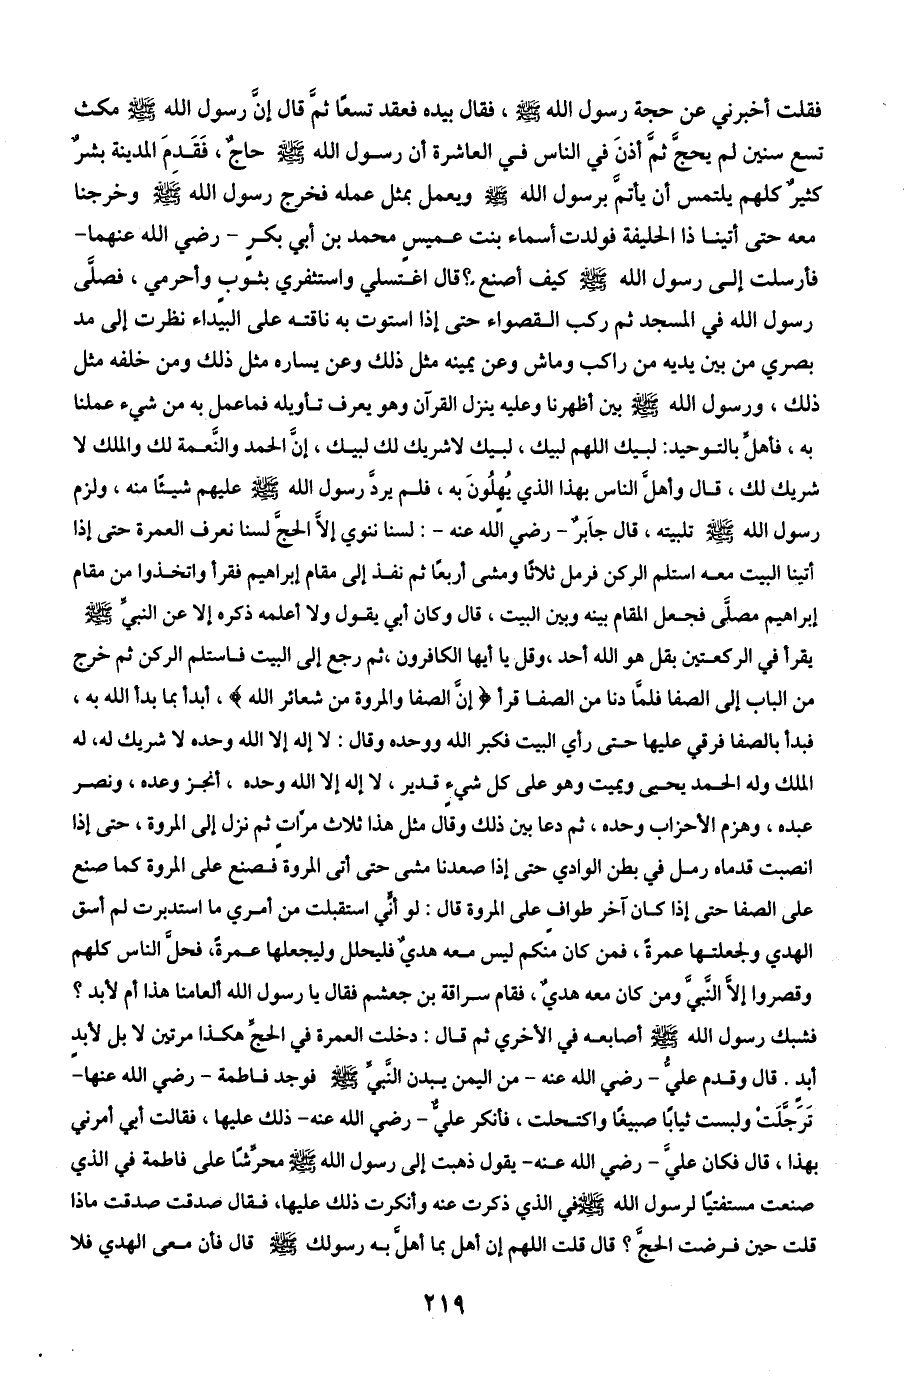 فقلت أخبرني عن حجة رسول الله ﷺ ، فقال بيده فعقد تسعًا ثمَّ قال إنَّ رسول الله ﷺ مكث
تسع سنين لم يحجَّ ثمَّ أذنَ في الناس في العاشرة أن رسول الله ﷺ حاجٌ ، فَقَدِمَ المدينة بشرٌ
كثيرٌ كلهم يلتمس أن يأتمَّ برسول الله ﷺ ويعمل بمثل عمله فخرج رسول الله ﷺ وخرجنا
معه حتى أتينا ذا الحليفة فولدت أسماء بنت عميسٍ محمد بن أبي بكرٍ - رضي الله عنهما-
فأرسلت إلى رسول الله ﷺ كيف أصنع ؟قال اغتسلي واستثفري بثوبٍ وأحرمي ، فصلَّى
رسول الله في المسجد ثم ركب القصواء حتى إذا استوت به ناقته على البيداء نظرت إلى مد
بصري من بين يديه من راكب وماش وعن يمينه مثل ذلك وعن يساره مثل ذلك ومن خلفه مثل
ذلك ، ورسول الله ﷺ بين أظهرنا وعليه ينزل القرآن وهو يعرف تأويله فماعمل به من شيء عملنا
به ، فأهلَّ بالتوحيد: لبيك اللهم لبيك ، لبيك لاشريك لك لبيك ، إنَّ الحمد والنَّعمة لك والملك لا
شريك لك ، قال وأهلَّ الناس بهذا الذي يُهلُونَ به ، فلم يردَّ رسول الله ﷺ عليهم شيئًا منه ، ولزم
رسول الله ﷺ تلبيته ، قال جابرٌ - رضي الله عنه - : لسنا ننوي إلاَّ الحجَّ لسنا نعرف العمرة حتى إذا
أتينا البيت معه استلم الركن فرمل ثلاثًا ومشى أربعًا ثم نفذ إلى مقام إبراهيم فقرأ واتخذوا من مقام
إبراهيم مصلَّى فجعل المقام بينه وبين البيت ، قال وكان أبي يقول ولا أعلمه ذكره إلا عن النبيِّ ﷺ
يقرأ في الركعتين بقل هو الله أحد ،وقل يا أيها الكافرون ،ثم رجع إلى البيت فاستلم الركن ثم خرج
من الباب إلى الصفا فلمَّا دنا من الصفا قرأ ﴿ إنَّ الصفا والمروة من شعائر الله ﴾ ، أبدأ بما بدأ الله به ،
فبدأ بالصفا فرقي عليها حتى رأي البيت فكبر الله ووحده وقال : لا إله إلا الله وحده لا شريك له، له
الملك وله الحمد يحيى ويميت وهو على كل شيءٍ قدير ، لا إله إلا الله وحده ، أنجز وعده ، ونصر
عبده ، وهزم الأحزاب وحده ، ثم دعا بين ذلك وقال مثل هذا ثلاث مرَّاتٍ ثم نزل إلى المروة ، حتى إذا
انصبت قدماه رمل في بطن الوادي حتى إذا صعدنا مشى حتى أتى المروة فصنع على المروة كما صنع
على الصفا حتى إذا كان آخر طوافٍ على المروة قال : لو أنِّي استقبلت من أمري ما استدبرت لم أسق
الهدي ولجعلتها عمرةً ، فمن كان منكم ليس معه هديٌ فليحلل وليجعلها عمرةً، فحلَّ الناس كلهم
وقصروا إلاَّ النَّبيَّ ومن كان معه هديٌ ، فقام سراقة بن جعشم فقال يا رسول الله ألعامنا هذا أم لأبد ؟
فشبك رسول الله ﷺ أصابعه في الأخري ثم قال : دخلت العمرة في الحجِّ هكذا مرتين لا بل لأبدٍ
أبد . قال وقدم عليٌّ - رضي الله عنه - من اليمن ببدن النَّبيِّ ﷺ فوجد فاطمة - رضي الله عنها-
تَرَجَّلَتْ ولبست ثيابًا صبيغًا واكتحلت ، فأنكر عليٌّ - رضي الله عنه- ذلك عليها ، فقالت أبي أمرني
بهذا ، قال فكان عليٌّ - رضي الله عنه- يقول ذهبت إلى رسول الله ﷺ محرِّشًا على فاطمة في الذي
صنعت مستفتيًا لرسول الله ﷺفي الذي ذكرت عنه وأنكرت ذلك عليها، فقال صدقت صدقت ماذا
قلت حين فرضت الحجَّ ؟ قال قلت اللهم إن أهل بما أهلَّ به رسولك ﷺ قال فأن معى الهدي فلا
٢١٩